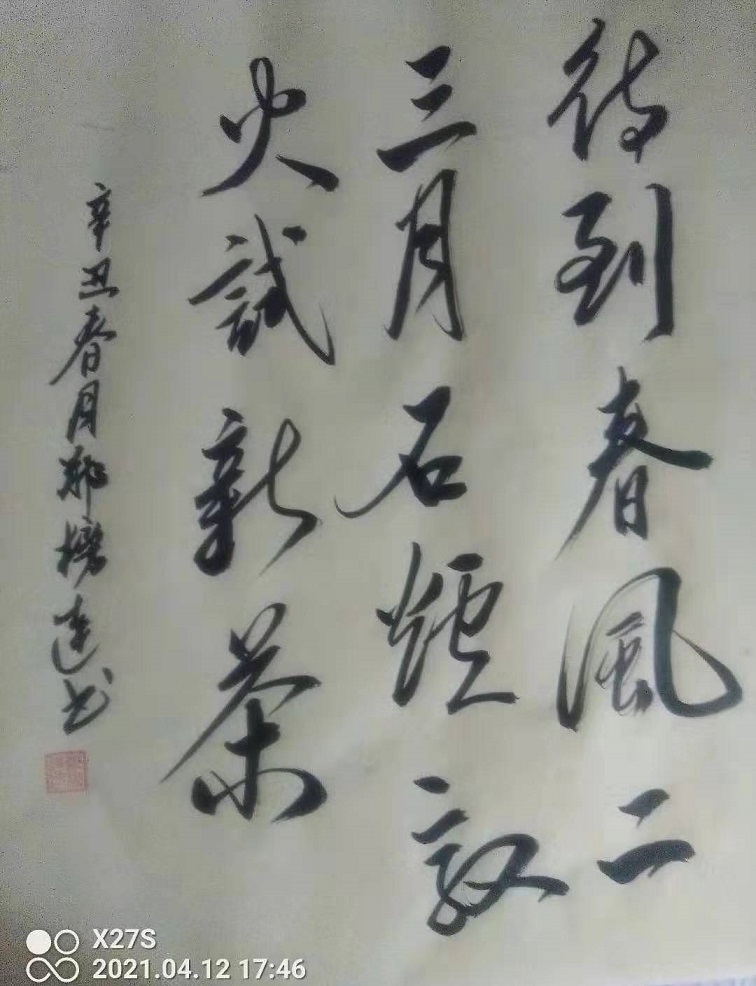 待到春風二
三月石爐敲
火試新茶
辛丑春月鄭 達书
X27S
2021.04.12 17:46